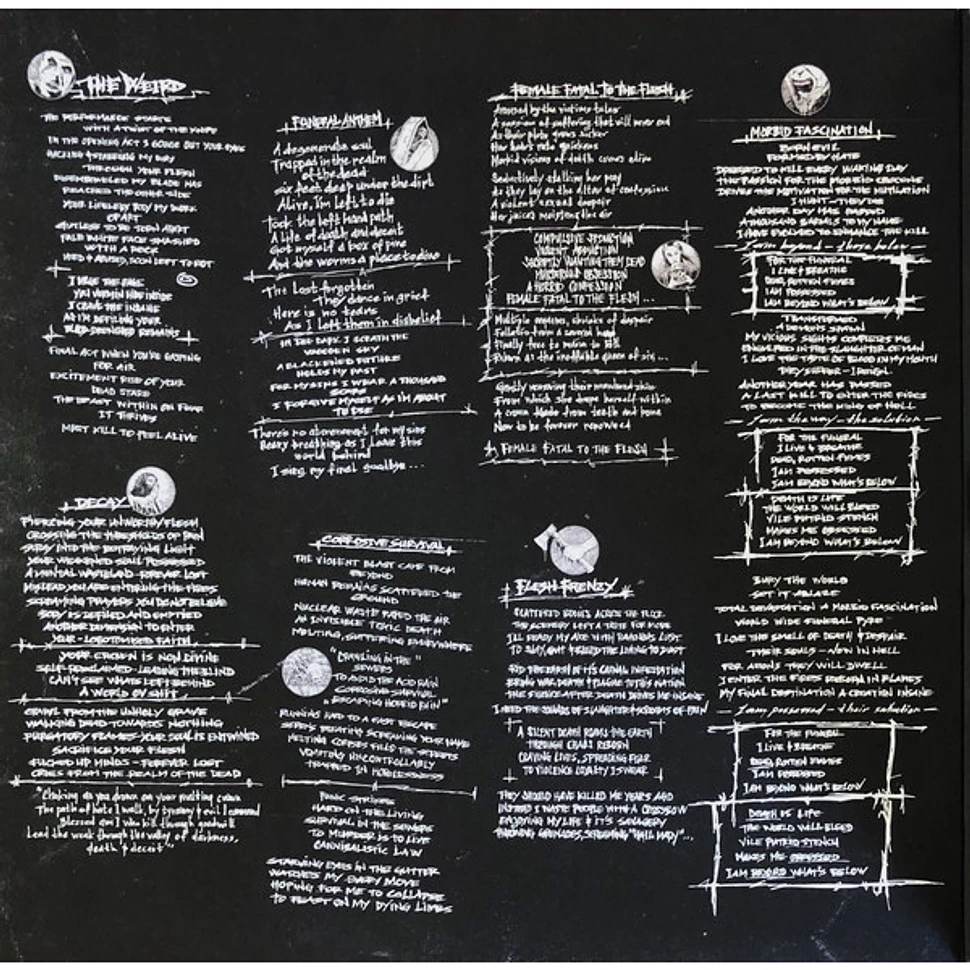 THE WEIRD
THE PERFORMANCE STARTS
WITH A TWIST OF THE KNIFE
IN THE OPENING ACT I GOUGE OUT YOUR EYES
HACKING & STABBING MY WAY
THROUGH YOUR FLESH
DISEMBOWELED MY BLADE HAS
REACHED THE OTHER SIDE
YOUR LIFELESS BODY MY WORK
OF ART
GUTLESS TO BE TORN APART
PALE WHITE FACE SMASHED
WITH A ROCK
USED & ABUSED, SOON LEFT TO ROT
YOU VERMIN HIDE INSIDE
I CRAVE THE INSANE
AS I'M DEFILING YOUR
BLOOD DRENCHED REMAINS
FINAL ACT WHEN YOU'RE GASPING
FOR AIR
EXCITEMENT RISE OF YOUR
DEAD STARE
THE BEAST WITHIN ON FEAR
IT THRIVES
MUST KILL TO FEEL ALIVE
DECAY
PIERCING YOUR UNWORTHY FLESH
CROSSING THE THRESHOLDS OF PAIN
INTO THE BETRAYING LIGHT
YOUR WEAKENED SOUL POSSESSED
A MENTAL WASTELAND FOREVER LOST
MISLEAD YOU ARE ENTERING THE FIRES
SCREAMING PRAYERS YOU DO NOT BELIEVE
BODY IS DEFILED AND EMPTIED
ANOTHER DIMENSION TO ENTER
YOUR - LOBOTOMISED FAITH
YOUR CROWN IS NOW DIVINE
SELF-PROCLAIMED - LEADING THE BLIND
CAN'T SEE WHATS LEFT BEHIND
A WORLD OF SHIT
CRAWL FROM THE UNHOLY GRAVE
WALKING DEAD TOWARDS NOTHING
PURGATORY FLAMES YOUR SOUL IS ENTWINED
SACRIFICE YOUR FLESH
FUCKED UP MINDS - FOREVER LOST
CRIES FROM THE REALM OF THE DEAD
"Choking as you drown on your melting crown
The path of hate I walk, by tyranny & evil I
Blessed am I who kill through goodwill
Lead the weak through the valley of darkness,
death & deceit"
FUNERAL ANTHEM
A degenerate soul
Trapped in the realm
of the dead
Six feet deep under the dirt
Alive, I'm left to die
Took the left hand path
A life of death and decent
Got myself a box of pine
And the worms a place to dine
The lost forgotten
They dance in grief
Here is no tears
As I left them in disbelief
IN THE DARK I SCRATCH THE
WOODEN SKY
A BLACKENED FUTURE
HOLDS MY PAST
FOR MY SINS I WEAR A THOUSAND
SCARS
I FORGIVE MYSELF AS I'M ABOUT
TO DIE
There's no atonement for my sins
Heavy breathing as I leave this
world behind
I sing my final goodbye ...
CORROSIVE SURVIVAL
THE VIOLENT BLAST CAME FROM
BEYOND
HUMAN REMAINS SCATTERED THE
GROUND
NUCLEAR WASTE FUSED THE AIR
AN INVISIBLE TOXIC DEATH
MELTING, SUFFERING EVERYWHERE
"CRAWLING IN THE"
SEWERS
TO AVOID THE ACID RAIN
CORROSIVE SURVIVAL
"ESCAPING HORRID PAIN"
RUNNING HARD TO A FAST ESCAPE
SIRENS BEATING SCREAMING YOUR NAME
MELTING CORPSES FILLS THE STREETS
VOMITING UNCONTROLLABLY
TRAPPED IN HOPELESSNESS
PANIC
HARD ON THE LIVING
SURVIVAL IN THE SEWERS
TO MURDER IS TO LIVE
CANNIBALISTIC LAW
STARVING EYES IN THE GUTTER
WATCHES MY EVERY MOVE
HOPING FOR ME TO COLLAPSE
TO FEAST ON MY DYING LIMBS
FEMALE FATAL TO THE FLESH
Aroused by the victims tales
A passion of suffering that will never end
As their plots grows sicker
Her heart rate quickens
Morbid visions of death comes alive
Seductively stalking her prey
As they lay on the altar of confession
A violent sexual despair
Her juices moistens the air
COMPULSIVE SEDUCTION
VIOLENT ABDUCTION
SECRETLY WANTING THEM DEAD
MURDEROUS OBSESSION
A HORRID CONFESSION
FEMALE FATAL TO THE FLESH ...
Multiple orgasms, shrieks of despair
Followed from a sacred hand
Finally free to maim to kill
Return as the ineffable queen of sin ...
Gently removing their murdered skin
From which she drape herself within
A crown made from teeth and bone
Now to be forever renowned
FEMALE FATAL TO THE FLESH
FLESH FRENZY
SCATTERED BODIES ACROSS THE FLOOR
THE SCENERY LEFT A TASTE FOR MORE
I'LL READY MY AXE WITH RAVENOUS LUST
TO SLAY, GUT & GRIND THE LIVING TO DUST
RID THE EARTH OF IT'S CARNAL INFESTATION
BRING WAR DEATH & PLAGUE TO THIS NATION
THE SILENCE AFTER DEATH DRIVES ME INSANE
I NEED THE SOUNDS OF SLAUGHTER & SCREAMS OF PAIN
A SILENT DEATH ROAMS THE EARTH
THROUGH CHAOS REBORN
CRAVING LIVES, SPREADING FEAR
TO VIOLENCE LOYALTY I SWEAR
THEY SHOULD HAVE KILLED ME YEARS AGO
INSTEAD I WASTE PEOPLE WITH A CROSSBOW
ENJOYING MY LIFE & IT'S SAVAGERY
THROWING GRENADES, SCREAMING "HAIL MARY"...
MORBID FASCINATION
BORN EVIL
FORMED BY HATE
OBSESSED TO KILL EVERY WAKING DAY
THE PASSION FOR THE MORBID OVERCOME
DRIVES THE MOTIVATION FOR THE MUTILATION
I HUNT - THEY DIE
ANOTHER DAY HAS PASSED
A THOUSAND BURIALS TO MY NAME
I HAVE EVOLVED TO ENHANCE THE KILL
- I am beyond - those below -
FOR THE FUNERAL
I LIVE & BREATHE
DEAD, ROTTEN FUMES
I AM POSSESSED
I AM BEYOND WHAT'S BELOW
TRANSFORMED
A DEMONS SPAWN
MY VICIOUS SIGHTS COMPLETES ME
ENGULFED IN THE SLAUGHTER OF MAN
I LOVE THE TASTE OF BLOOD IN MY MOUTH
THEY SUFFER - I REIGN
ANOTHER YEAR HAS PASSED
A LAST KILL TO ENTER THE FIRES
TO BECOME THE KING OF HELL
- I am the way - the solution -
FOR THE FUNERAL
I LIVE & BREATHE
DEAD, ROTTEN FUMES
I AM POSSESSED
I AM BEYOND WHAT'S BELOW
DEATH IS LIFE
THE WORLD WILL BLEED
VILE PUTRID STENCH
MAKES ME OBSESSED
I AM BEYOND WHAT'S BELOW
BURY THE WORLD
SET IT ABLAZE
TOTAL DEVASTATION A MORBID FASCINATION
WORLD WIDE FUNERAL PYRE
I LOVE THE SMELL OF DEATH & DESPAIR
THEIR SOULS - NOW IN HELL
FOR AEONS THEY WILL DWELL
I ENTER THE FIRES REBORN IN FLAMES
MY FINAL DESTINATION A CREATION INSANE
- I am possessed - their salvation -
FOR THE FUNERAL
I LIVE & BREATHE
DEAD, ROTTEN FUMES
I AM POSSESSED
I AM BEYOND WHAT'S BELOW
DEATH IS LIFE
THE WORLD WILL BLEED
VILE PUTRID STENCH
MAKES ME OBSESSED
I AM BEYOND WHAT'S BELOW